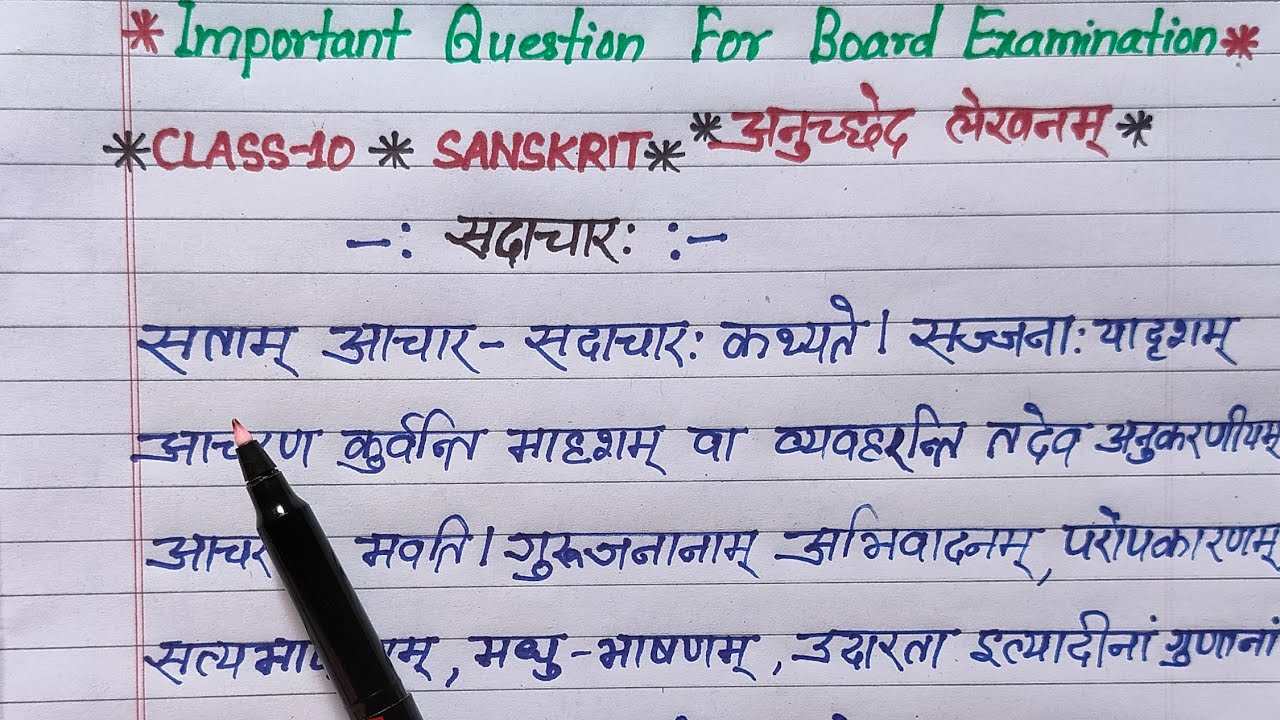 *Important Question For Board Examination*
*CLASS-10 * SANSKRIT* *अनुच्छेद लेखनम्*
-: सदाचार: :-
सताम् आचार - सदाचार: कथ्यते। सज्जना: यादृशम्
कुर्वन्ति मादृशम् वा व्यवहरन्ति तदेव अनुकरणीयम्
मवति। गुरूजनानाम् अभिवादनम्, परोपकारणम्
मधु-भाषणम्, उदारता इत्यादीनां गुणानां